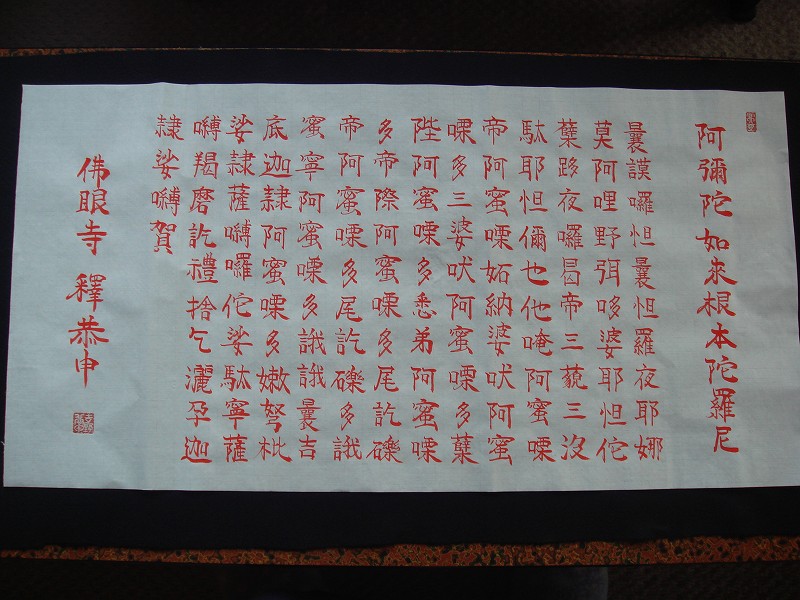 阿彌陀如来根本陀羅尼
曩謨囉怛曩怛羅夜耶娜
莫阿哩野弭哆婆耶怛佗
蘖跢夜囉曷帝三藐三沒
駄耶怛儞也他唵阿蜜㗚
帝阿蜜㗚妬納婆吠阿蜜
㗚多三婆吠阿蜜㗚多蘖
陛阿蜜㗚多悉弟阿蜜㗚
多帝際阿蜜㗚多尾訖礫
帝阿蜜㗚多尾訖礫多誐
蜜寧阿蜜㗚多誐誐曩吉
底迦隷阿蜜㗚多嫩努枇
娑隷薩嚩囉佗娑駄寧薩
嚩羯磨訖禮捨乞灑孕迦
隷娑嚩賀
佛眼寺 釋恭申